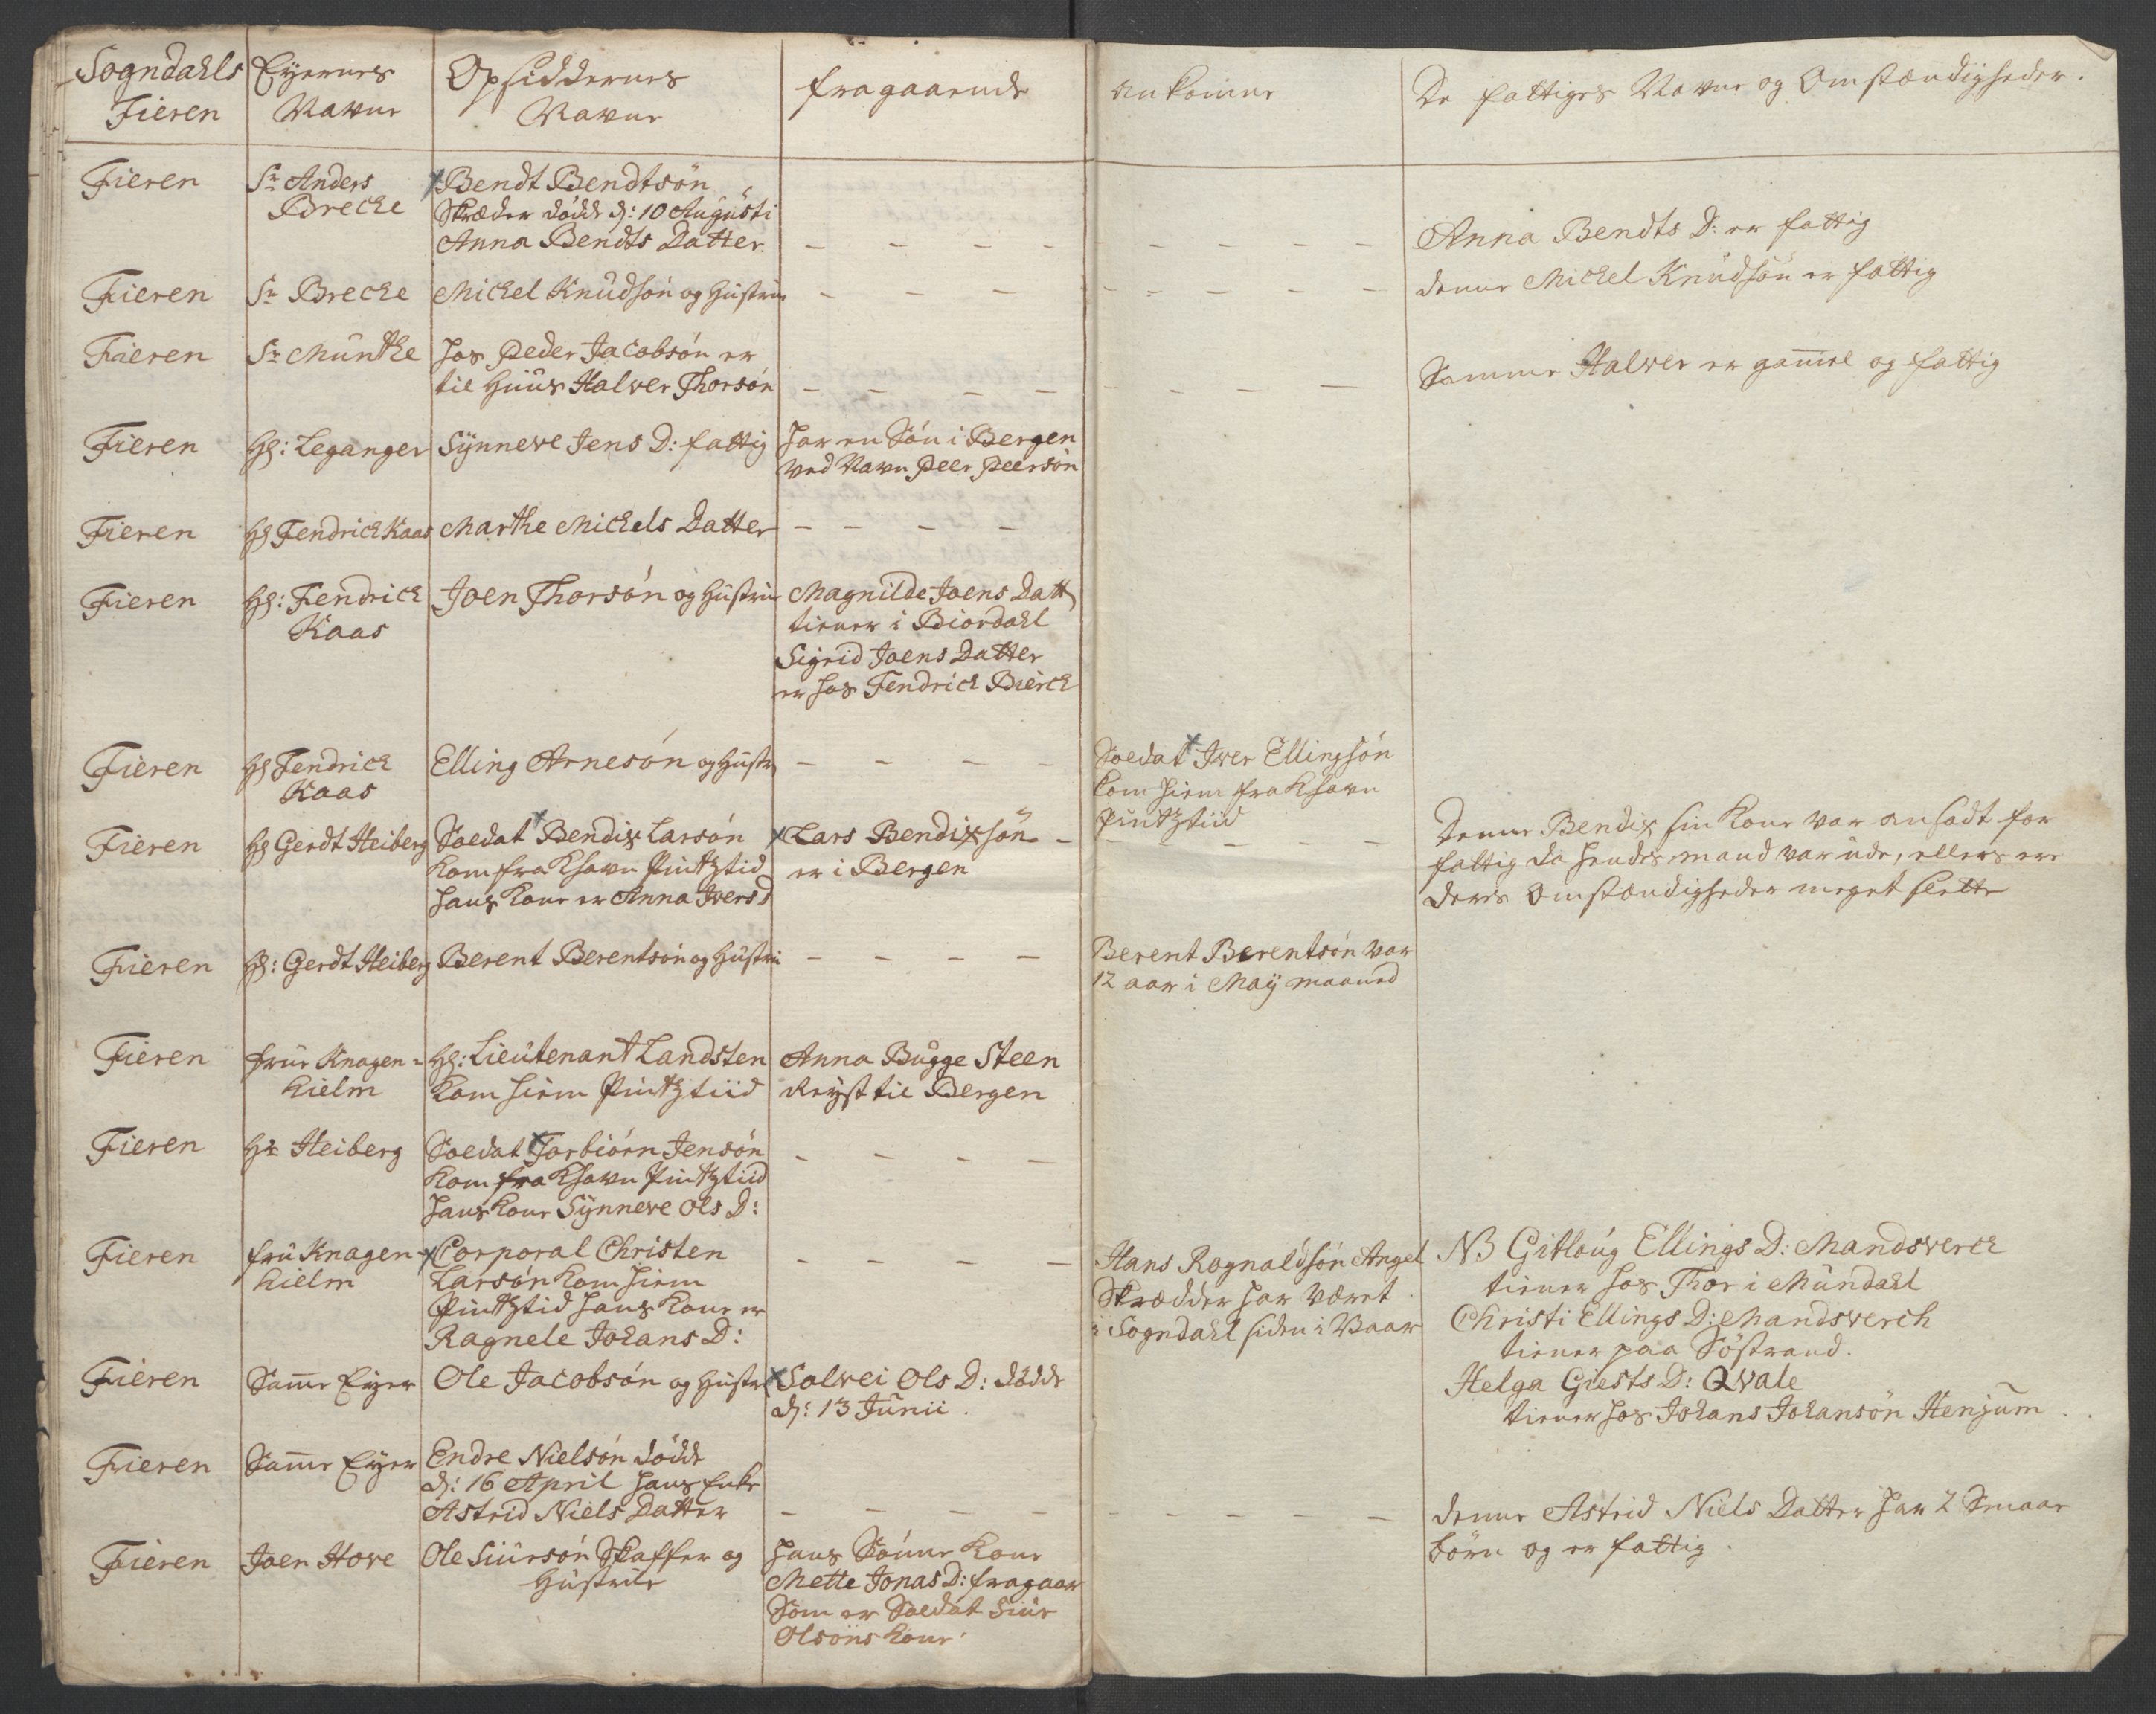 Sogndahls Fieren
Eyernes Navne
Opsiddernes Navne
fragaaende
ankomne
De fattiges Navne og Omstændigheder.
Fieren
Sr Anders
Brecke
Bendt Bendtsön
Skræder döde d: 10 Augusti
Anna Bendts Datter
Anna Bendts D: er fattig
Fieren
Sr Brecke
Mickel Knudsön og Hustrue
denne Mickel Knudsön er fattig
Fieren
Sr Munthe
hos Peder Jacobsön er
til Huus Halver Thorsön
Samme Halver er gam̄el og fattig
Fieren
Hr: Leganger
Synneve Jens D: fattig
har en Sön i Bergen
ved Navn Peer Peersön
Fieren
Hr Fendrick Kaas
Marthe Mickels Datter
Fieren
Hr: Fendrick
Kaas
Joen Thorsön og Hustrue
Magnilde Joens Datt
tiener i Biordahl
Sigrid Joens Datter
er hos Fendrick Bierck
Fieren
Hr Fendrick
Kaas
Elling Arnesön og Hustr
Soldat Iver Ellingsön
kom hiem fra Khavn
Pintztiid
Fieren
Hr Gerdt Heiberg
Soldat Bendix Larsön
kom fra Khavn Pintztid
hans Kone er Anna Ivers D
Lars Bendixsön
er i Bergen
Denne Bendix sin Kone var ansadt for
fattig da hendes mand var ude, ellers ere
deris Omstændigheder meget slette
Fieren
Hr: Gerdt Heiberg
Berent Berentsön og Hustru
Berent Berentsön var
12 aar i Maij maaned
Fieren
frue Knagen=
hielm
Hr: Lieutenant Landsten
kom hiem Pintztiid
Anna Bugge Steen
Reyst til Bergen
Fieren
Hr Heiberg
Soldat Torbiörn Jensön
kom fra Khavn Pintztiid
hans Kone Synneve Ols D:
Fieren
fru Knagen-
hielm
Corporal Christen
Larsön kom hiem
Pintztid hans Kone er
Ragnele Johans D:
Hans Rognaldsön Angel
Skrædder har været
i Sogndahl siden i Vaar
NB Gitloug Ellings D: Mandsverck
tiener hos Thor i Mundahl
Christi Ellings D: Mandsverch
tiener paa Söstrand.
Helga Giests D: Qvale
tiener hos Johans Johansön Henjum
Fieren
Sam̄e Eyer
Ole Jacobsön og Hustr
Solvei Ols D: döde
d: 13 Junii
Fieren
Sam̄e Eyer
Endre Nielsön döde
d: 16 April hans Enke
Astrid Niels Datter
denne Astrid Niels Datter har 2 Smaae
börn og er fattig.
Fieren
Joen Hove
Ole Siursön Skaffer og
Hustrue
hans Sönne Kone
Mette Jonas D: fragaar
Som er Soldat Siur
Olsöns Kone